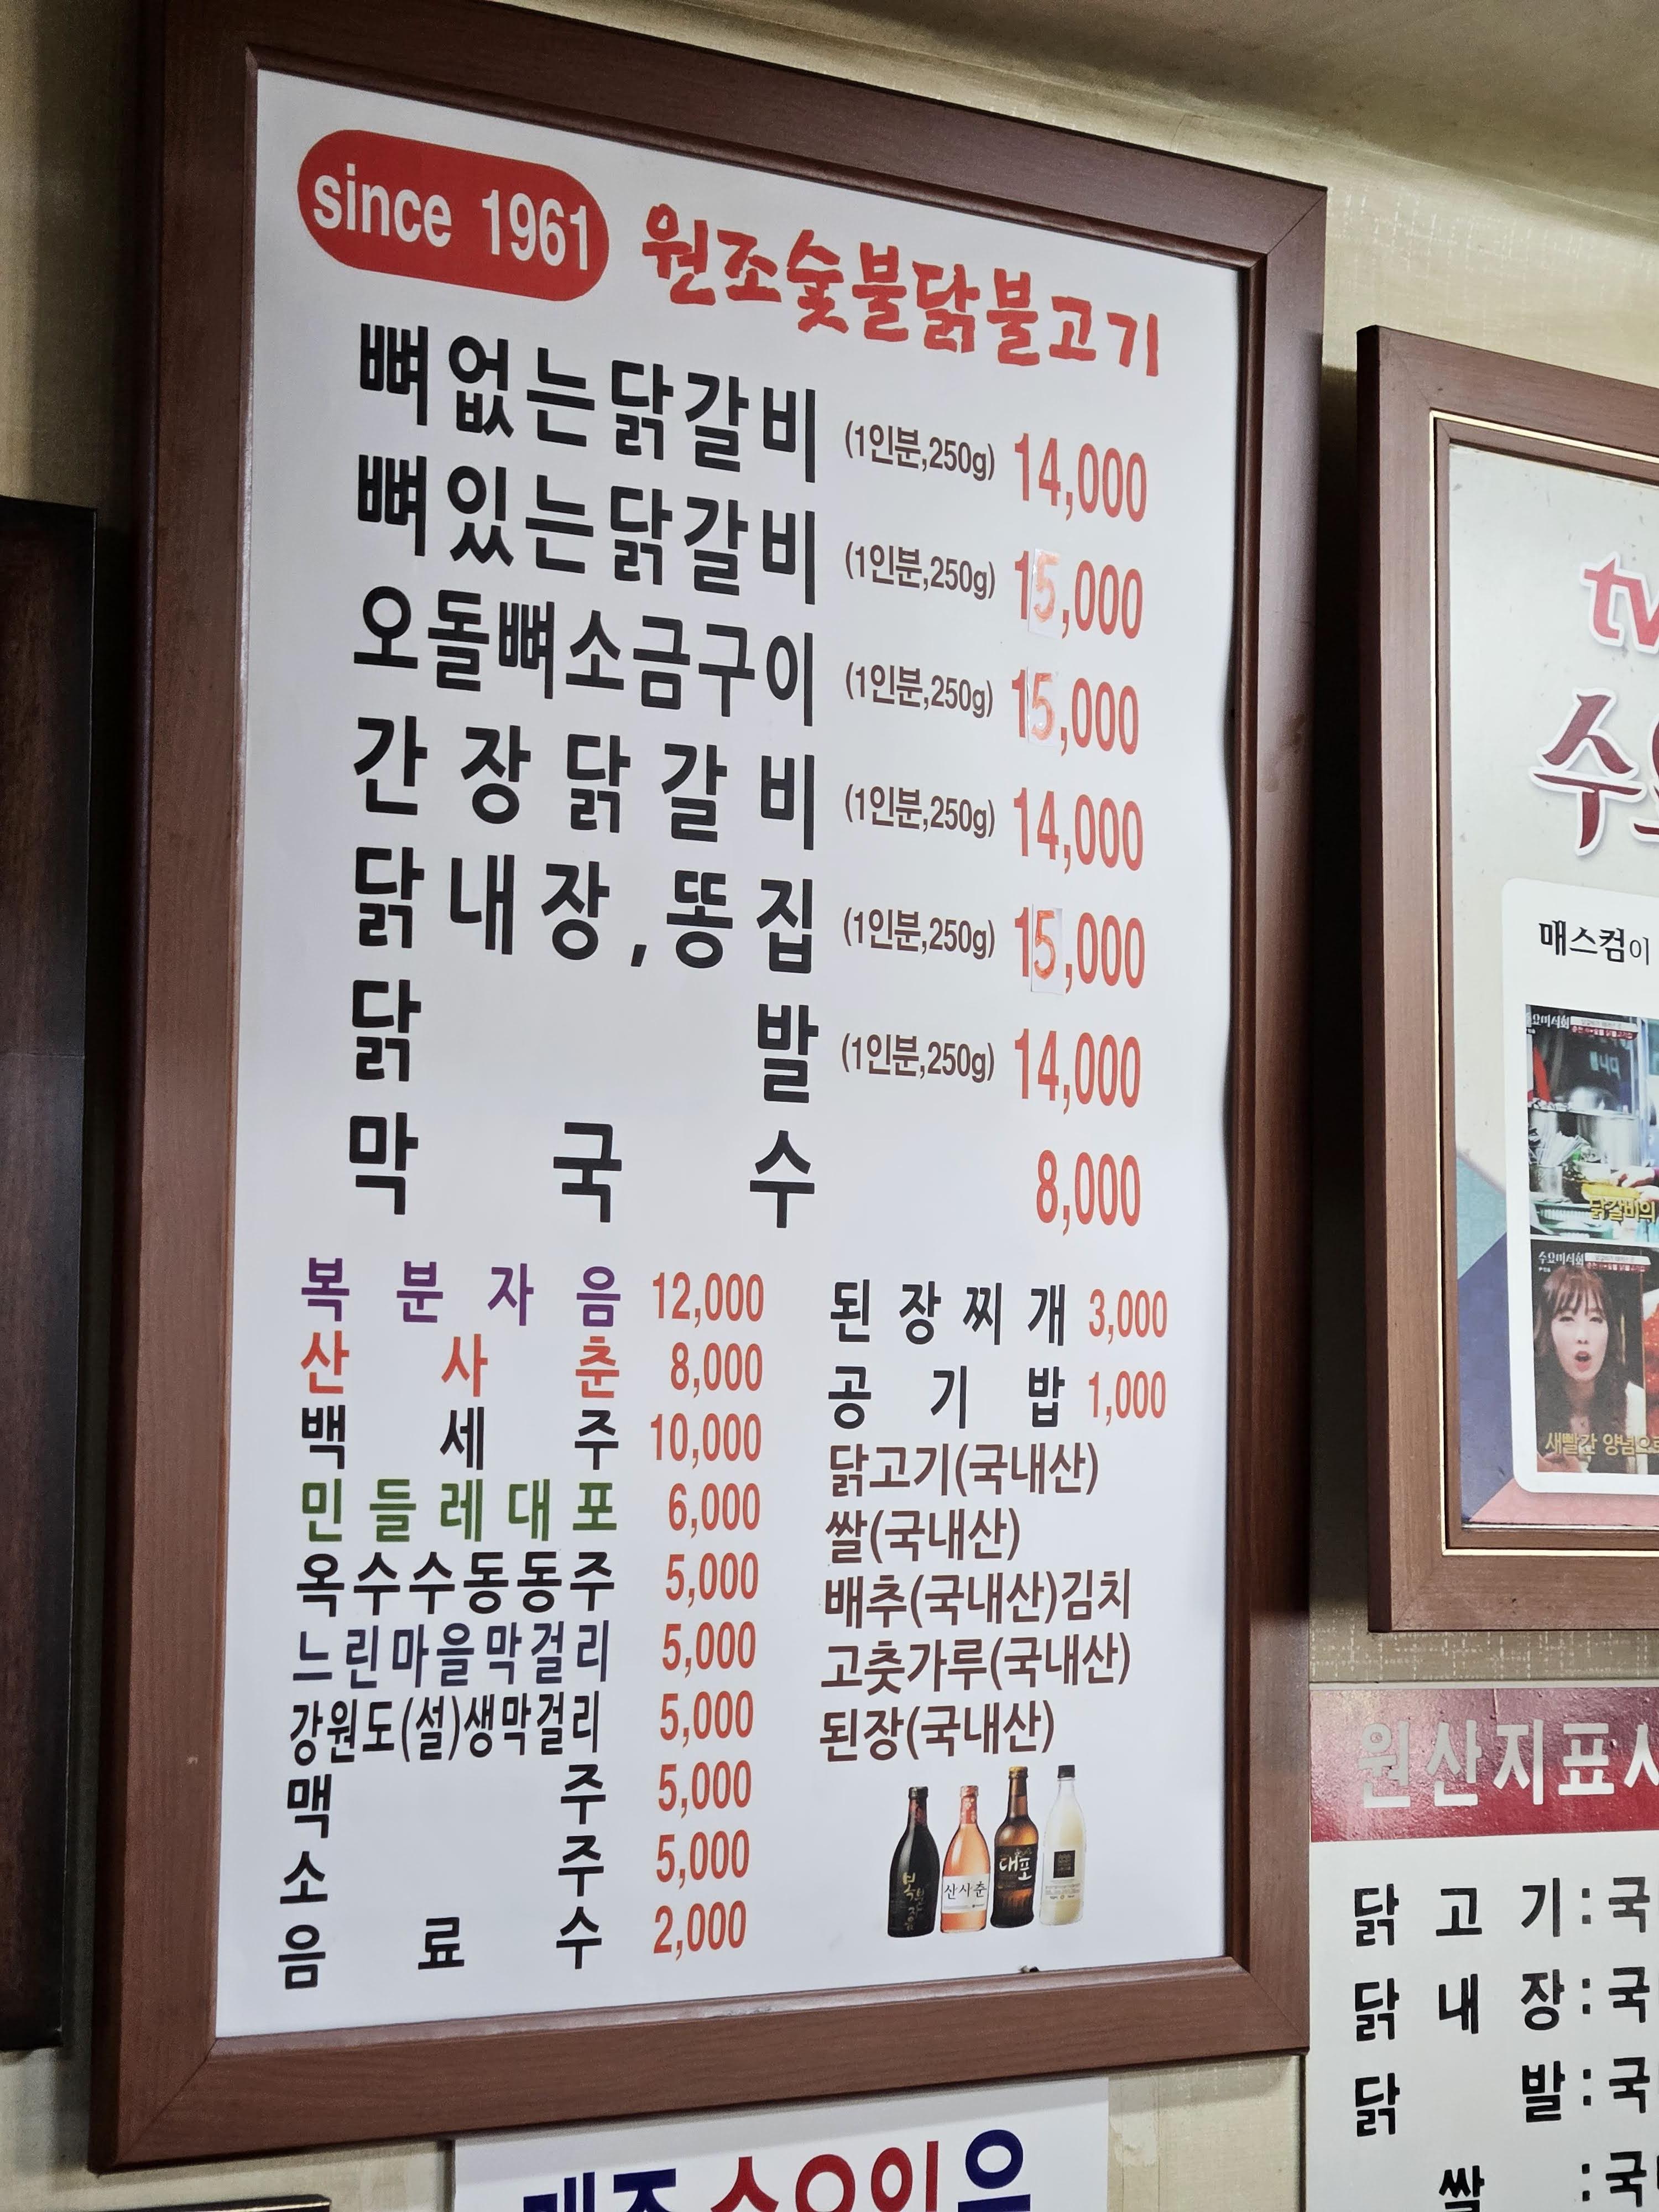 since 1961 원조숯불닭불고기
뼈없는닭갈비 (1인분,250g) 14,000
뼈있는닭갈비 (1인분,250g) 15,000
오돌뼈소금구이 (1인분,250g) 15,000
간장닭갈비 (1인분,250g) 14,000
닭내장,똥집 (1인분,250g) 15,000
닭발 (1인분,250g) 14,000
막국수 8,000
복분자음 12,000
산사춘 8,000
백세주 10,000
민들레대포 6,000
옥수수동동주 5,000
느린마을막걸리 5,000
강원도(설)생막걸리 5,000
맥주 5,000
소주 5,000
음료수 2,000
된장찌개 3,000
공기밥 1,000
닭고기(국내산)
쌀(국내산)
배추(국내산)김치
고춧가루(국내산)
된장(국내산)
산사춘
대포
tv
수요
매스컴이
수요미식회
닭갈비의
수요미식회
새빨간 양념으로
원산지표시
닭고기:국
닭내장:국
닭발:국
쌀:국
매주 수요일은